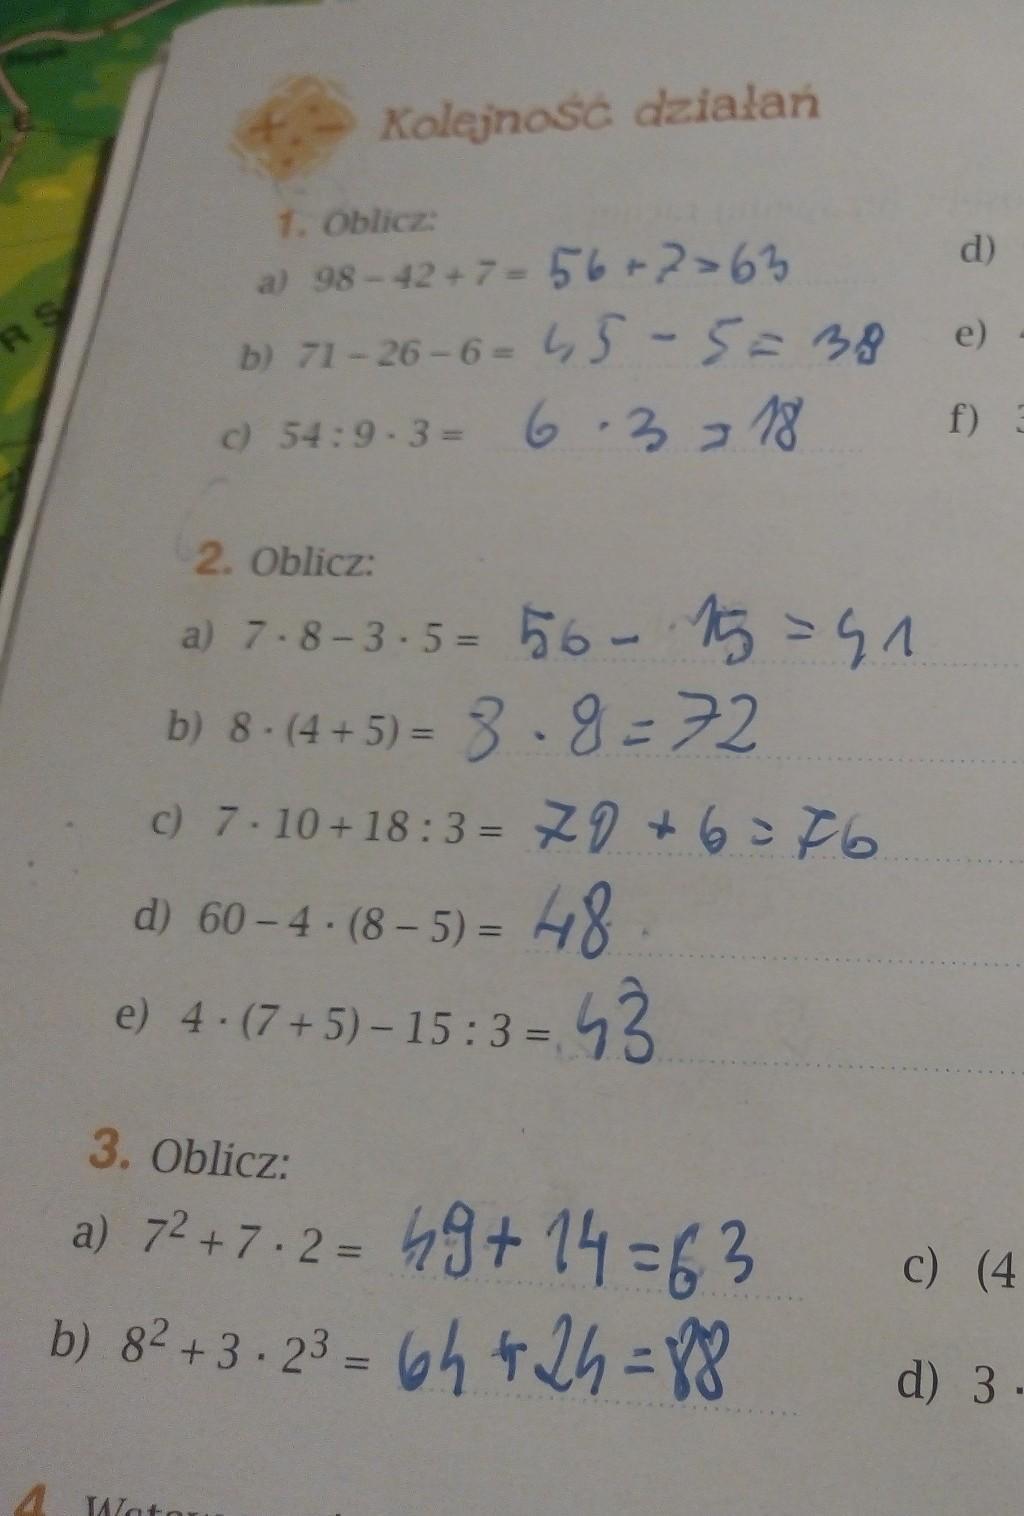 Kolejność działań
1. Oblicz:
a) 98 – 42 + 7 = 56 + 7 = 63
d)
b) 71 – 26 – 6 = 45 - 5 = 38
e)
c) 54 : 9 · 3 = 6 · 3 = 18
f) 3
2. Oblicz:
a) 7 · 8 – 3 · 5 = 56 - 15 = 41
b) 8 · (4 + 5) = 8 · 8 = 72
c) 7 · 10 + 18 : 3 = 70 + 6 = 76
d) 60 – 4 · (8 – 5) = 48
e) 4 · (7 + 5) – 15 : 3 = 43
3. Oblicz:
a) 7² + 7 · 2 = 49 + 14 = 63
c) (4
b) 8² + 3 · 2³ = 64 + 24 = 88
d) 3 ·
4.